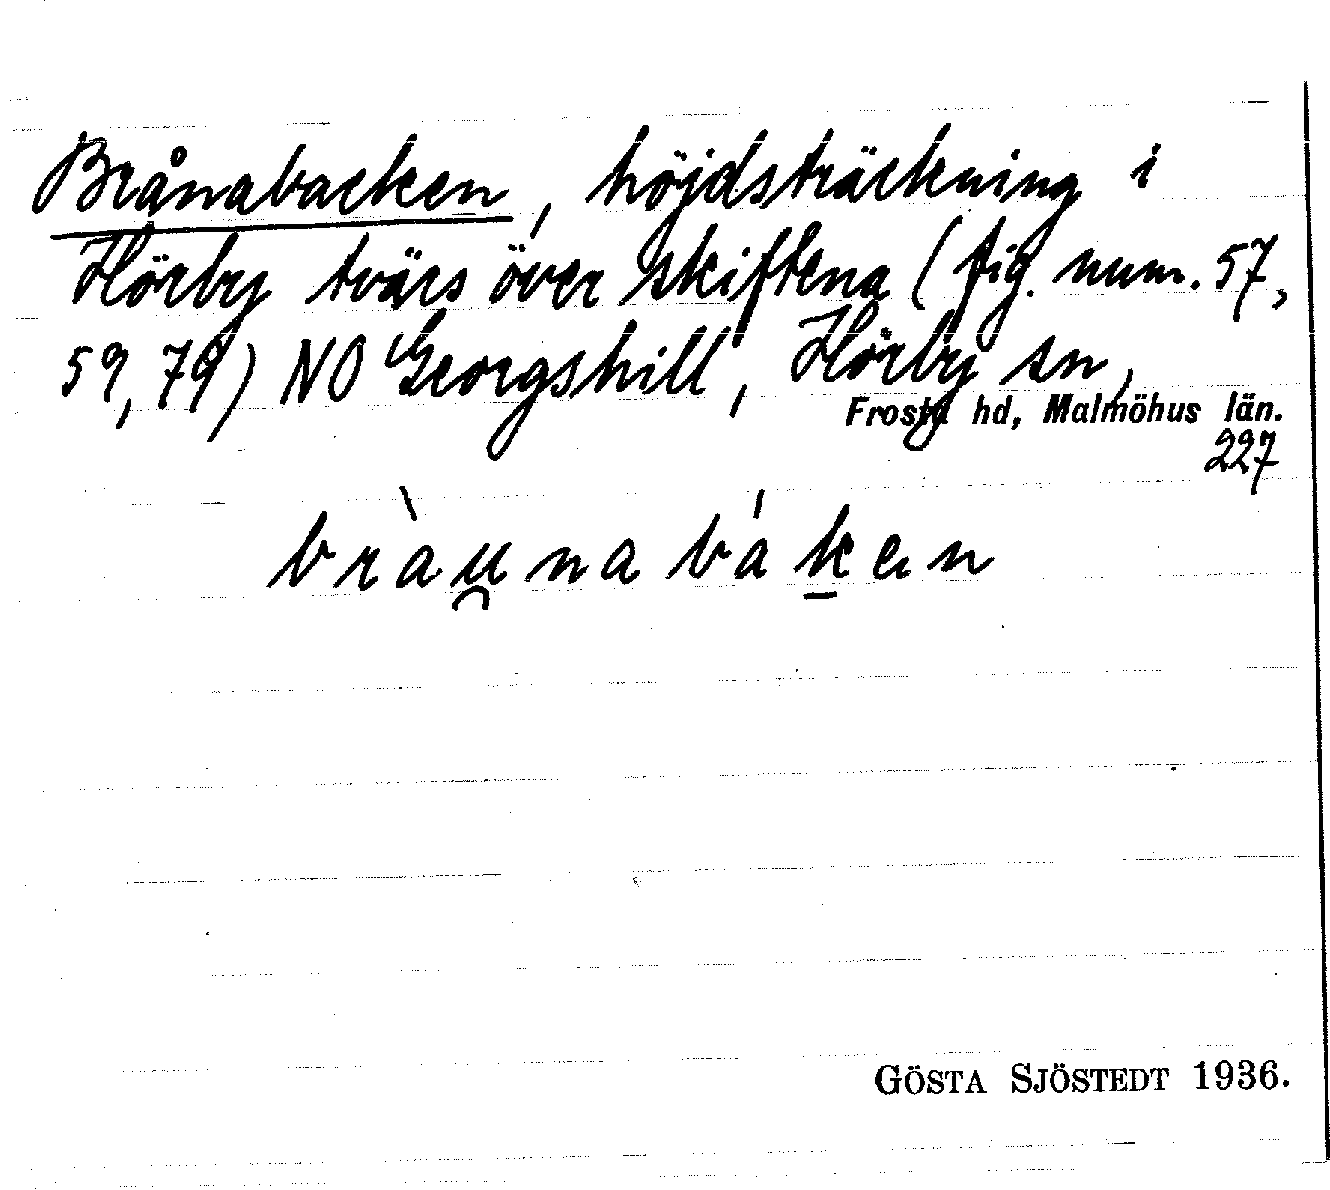 Brånabacken, höjdsträckning i
Hörby tvärs över skiftena (fig. num. 57,
59, 79) NO Georgshill, Hörby sn,
Frosta hd, Malmöhus län.
227
bràu̯na bák̲en
GÖSTA SJÖSTEDT 1936.